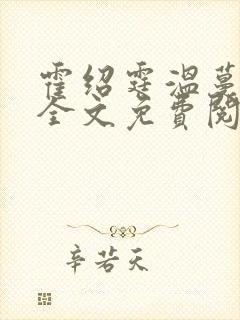 霍绍霆温蔓
全文免费阅
辛若天